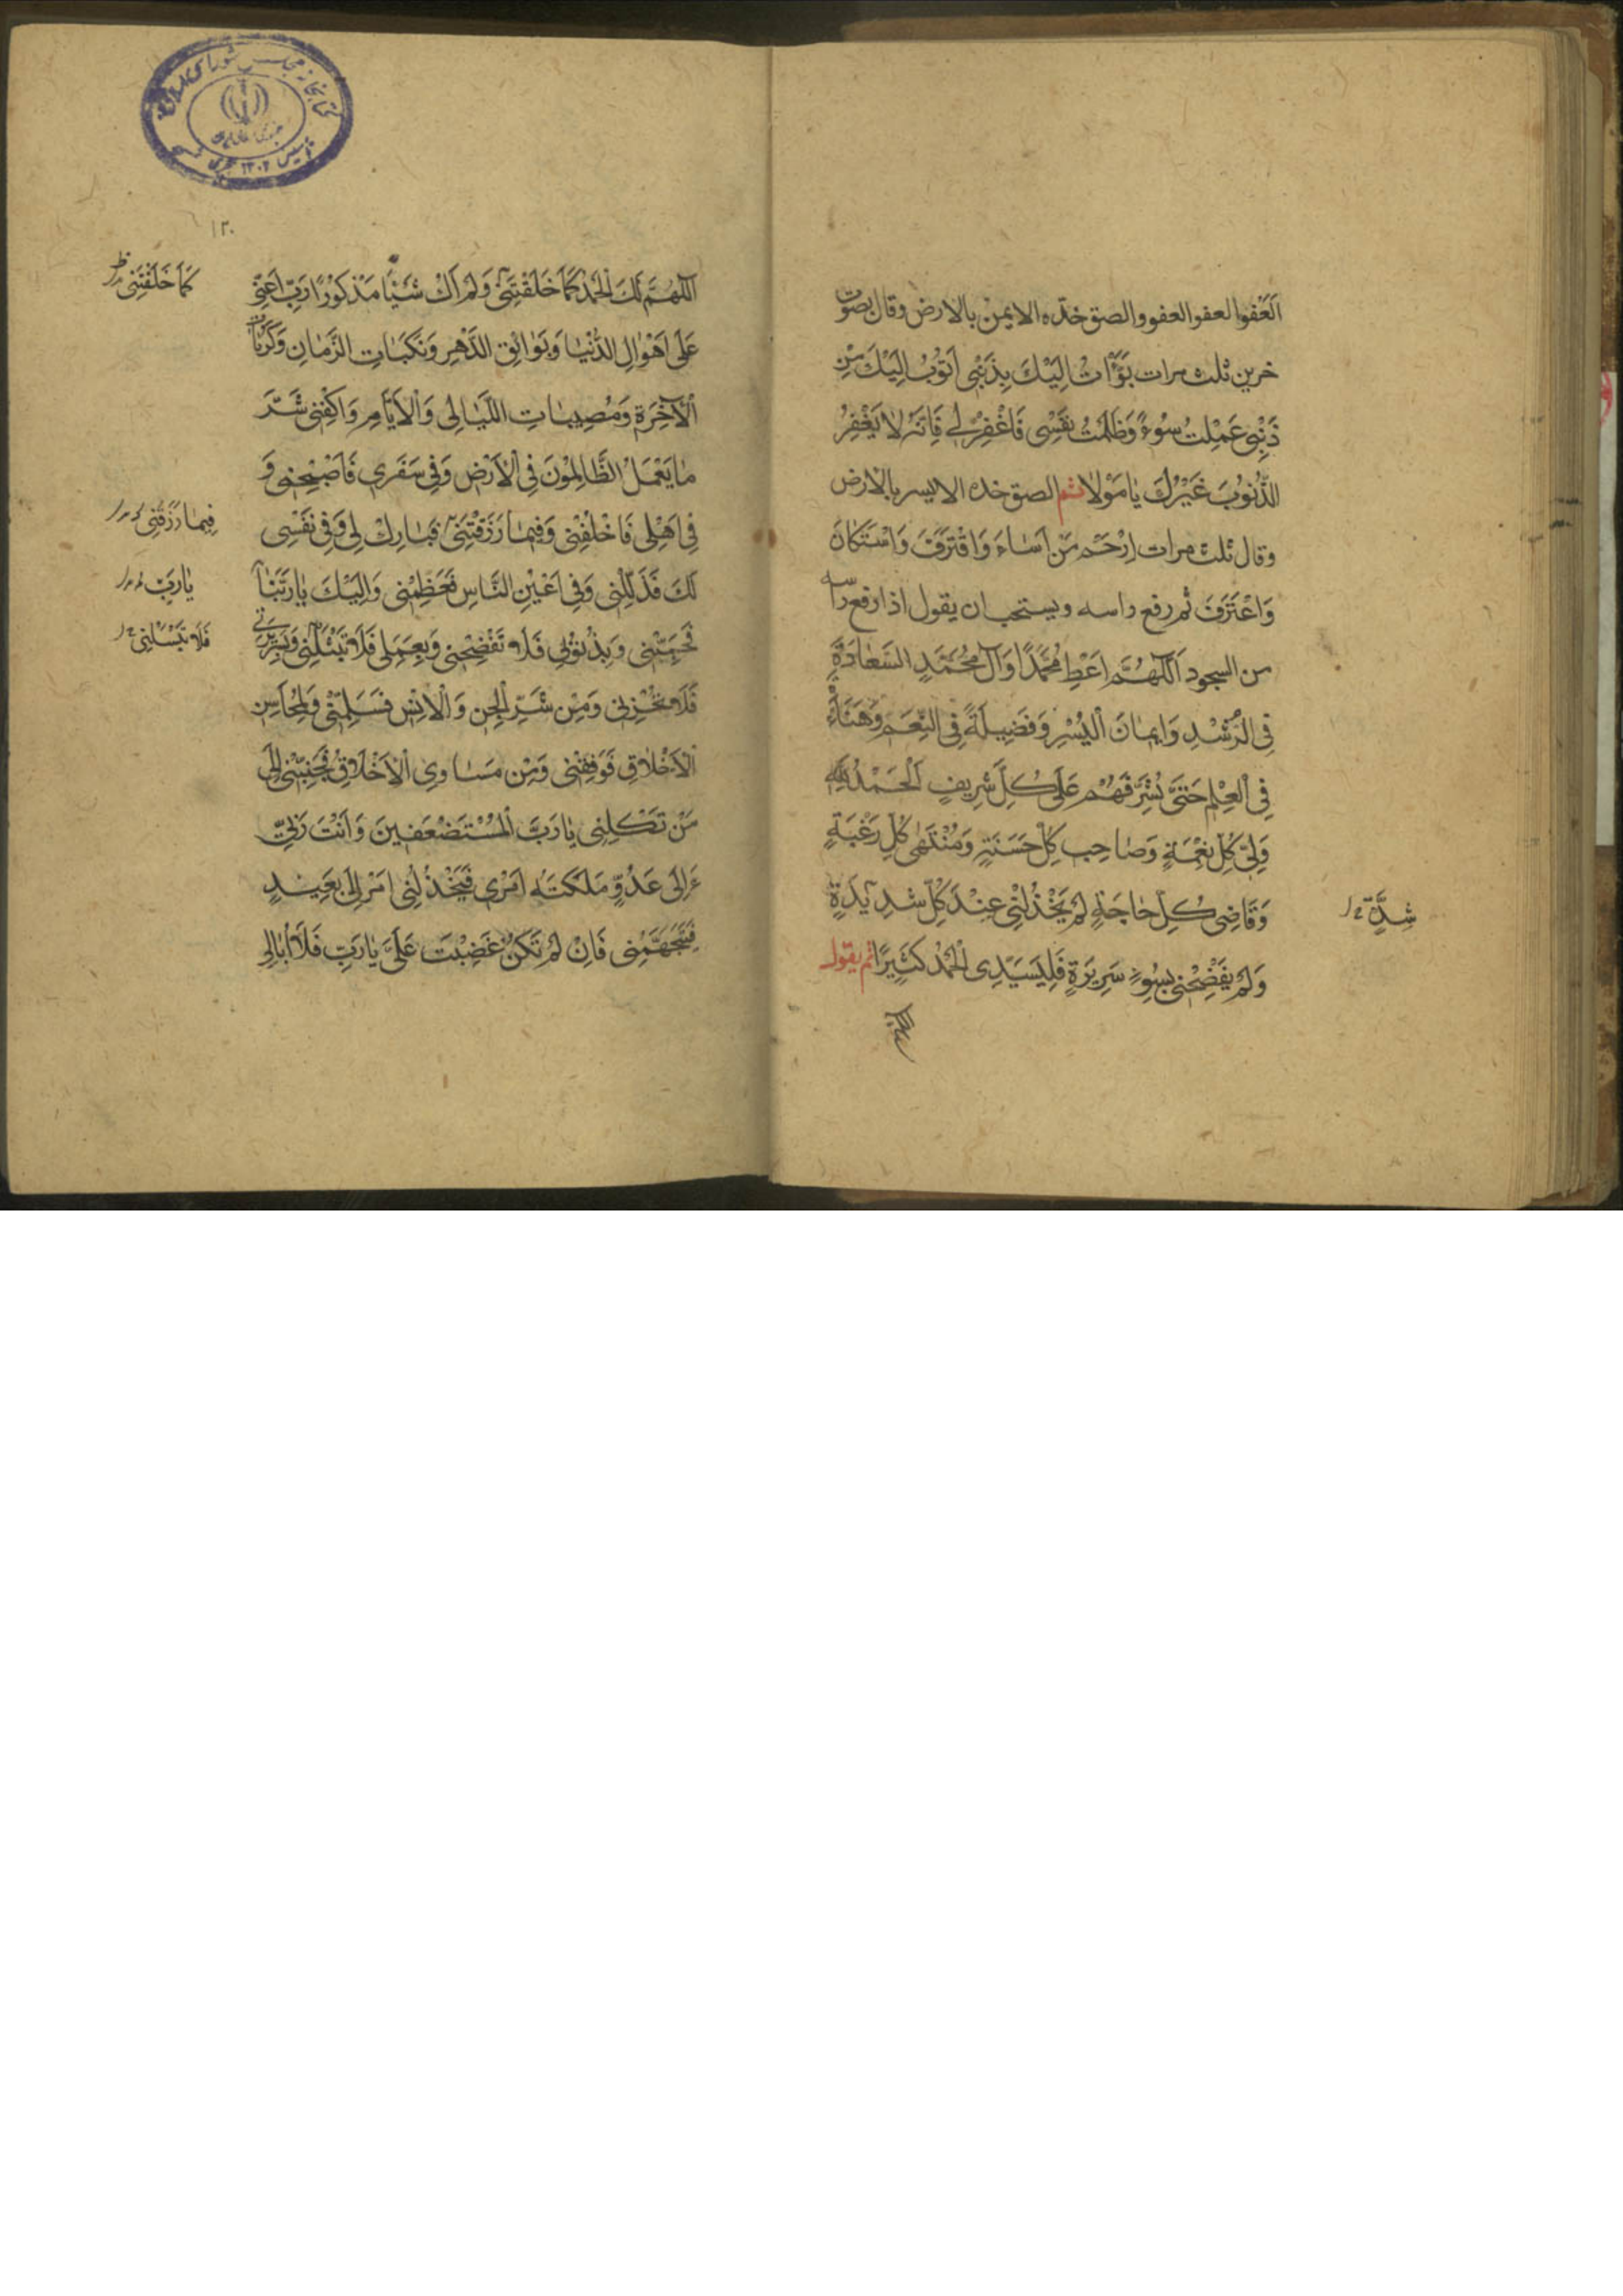 اَلْعَفْوَ العفو العفو والصق خدّه الايمن بالارض وقال بصوت
حزين ثلث مرات بُؤْتُ اِلَيْكَ بِذَنْبى اَتُوبُ اِلَيْكَ مِنْ
ذَنْبى عَمِلْتُ سُوءً وَظَلَمْتُ نَفْسِى فَاغْفِرْ لِى فَاِنَّهُ لا يَغْفِرُ
الذُّنُوبَ غَيْرُكَ يٰا مَوْلاٰ ثم الصق خده الايسر بالارض
وقال ثلث مرات اِرْحَمْ مَنْ اَسٰاءَ وَاقْتَرَفَ وَاسْتَكٰانَ
وَاعْتَرَفَ ثم رفع راسه ويستحب ان يقول اذا رفع راسه
من السجود اَللّٰهُمَّ اَعْطِ مُحَمَّدًا وَآلَ مُحَمَّدٍ السَّعٰادَةَ
فِى الرُّشْدِ وَايمٰانَ الْيُسْرِ وَفَضِيلَةً فِى النِّعَمِ وَهَنٰاءَةً
فِى الْعِلْمِ حَتّىٰ تُشَرِّفَهُمْ عَلىٰ كُلِّ شَرِيفٍ اَلْحَمْدُ لِلّٰهِ
وَلِىِّ كُلِّ نِعْمَةٍ وَصٰاحِبِ كُلِّ حَسَنَةٍ وَمُنْتَهىٰ كُلِّ رَغْبَةٍ
وَقٰاضِى كُلِّ حٰاجَةٍ لَمْ يَخْذُلْنِى عِنْدَ كُلِّ شَدِيدَةٍ
شِدَّةٍ
وَلَمْ يَفْضَحْنِى بِسُوءِ سَرِيرَةٍ فَلِسَيِّدِى الْحَمْدُ كَثِيرًا ثم يقول
اللهم
١٣٠
اَللّٰهُمَّ لَكَ الْحَمْدُ كَمٰا خَلَقْتَنِى وَلَمْ اَكُ شَيْئًا مَذْكُورًا رَبِّ اَعِنِّى
كَمٰا خَلَقْتَنِى
عَلىٰ اَهْوٰالِ الدُّنْيٰا وَبَوٰائِقِ الدَّهْرِ وَنَكَبٰاتِ الزَّمٰانِ وَكُرُبٰاتِ
الْآخِرَةِ وَمُصِيبٰاتِ اللَّيٰالِى وَالْاَيّٰامِ وَاكْفِنِى شَرَّ
مٰا يَعْمَلُ الظّٰالِمُونَ فِى الْاَرْضِ وَفِى سَفَرِى فَاصْحَبْنِى وَ
فِى اَهْلِى فَاخْلُفْنِى وَفِيمٰا رَزَقْتَنِى فَبٰارِكْ لِى وَفِى نَفْسِى
فِيمٰا رَزَقْتَنِى
لَكَ فَذَلِّلْنِى وَفِى اَعْيُنِ النّٰاسِ فَعَظِّمْنِى وَاِلَيْكَ يٰا رَبَّنٰا
يٰا رَبِّ
فَحَبِّبْنِى وَبِذُنُوبِى فَلاٰ تَفْضَحْنِى وَبِعَمَلِى فَلاٰ تَبْتَلِنِى وَبِسَرِيرَتِى
فَلاٰ تُبْسِلْنِى
فَلاٰ تُخْزِنِى وَمِنْ شَرِّ الْجِنِّ وَالْاِنْسِ فَسَلِّمْنِى وَلِمَحٰاسِنِ
الْاَخْلاٰقِ فَوَفِّقْنِى وَمِنْ مَسٰاوِى الْاَخْلاٰقِ فَجَنِّبْنِى اِلىٰ
مَنْ تَكِلُنِى يٰا رَبَّ الْمُسْتَضْعَفِينَ وَاَنْتَ رَبِّى
ءَاِلىٰ عَدُوٍّ مَلَّكْتَهُ اَمْرِى فَيَخْذُلُنِى اَمْ اِلىٰ بَعِيدٍ
فَيَتَجَهَّمُنِى فَاِنْ لَمْ تَكُنْ غَضِبْتَ عَلَىَّ يٰا رَبِّ فَلاٰ اُبٰالِى